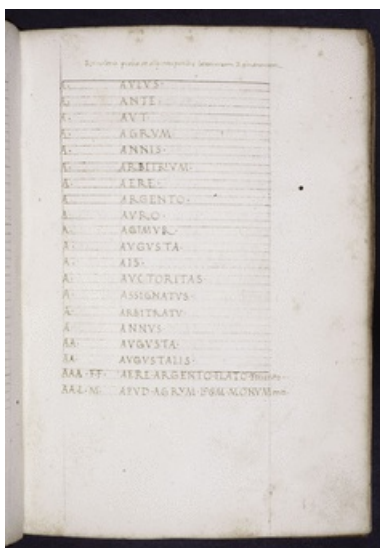 A· AVLVS·
A· ANTE·
A· AVT·
A· AGRVM·
A· ANNIS·
A· ARBITRIVM·
A· AERE·
A· ARGENTO·
A· AVRO·
A· AGIMVR·
A· AVGVSTA·
A· AIS·
A· AVCTORITAS·
A· ASSIGNATVS·
A· ARBITRATV·
A· ANNVS·
AA· AVGVSTA·
AA· AVGVSTALIS·
AAA·FF· AERE·ARGENTO·FLATO·
APVD·AGRVM·